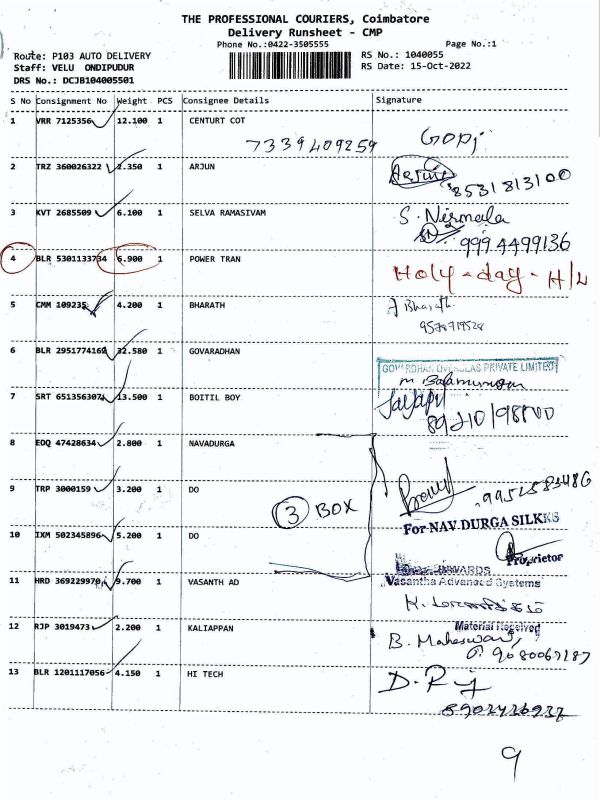 THE PROFESSIONAL COURIERS, Coimbatore
Delivery Runsheet - CMP
Phone No.:0422-3505555 Page No.:1
Route: P103 AUTO DELIVERY RS No.: 1040055
Staff: VELU ONDIPUDUR RS Date: 15-Oct-2022
DRS No.: DCJB104005501
S No Consignment No Weight PCS Consignee Details Signature
1 VRR 7125356 12.100 1 CENTURT COT
7339409259 Gopi
2 TRZ 360026322 2.350 1 ARJUN Arjun
8531813100
3 KVT 2685509 6.100 1 SELVA RAMASIVAM S. Nirmala
9994499136
4 BLR 5301133734 6.900 1 POWER TRAN Holy-day-H/L
5 CMM 109235 4.200 1 BHARATH Bharath
9578719528
6 BLR 2951774160 32.580 1 GOVARADHAN GOVARDHAN OVERSEAS PRIVATE LIMITED
m. Balamurugan
7 SRT 651356307 13.500 1 BOITIL BOY
8 EDQ 47428634 2.800 1 NAVADURGA
9 TRP 3000159 3.200 1 DO
3 BOX For NAV DURGA SILKKS
10 IXM 502345896 5.200 1 DO Proprietor
INWARDS
11 HRD 36922997 9.700 1 VASANTH AD Vasantha Advanced Systems
Material Received
12 RJP 3019473 2.200 1 KALIAPPAN B. Maheswari,
9080067187
13 BLR 1201117056 4.150 1 HI TECH D. Raj
9